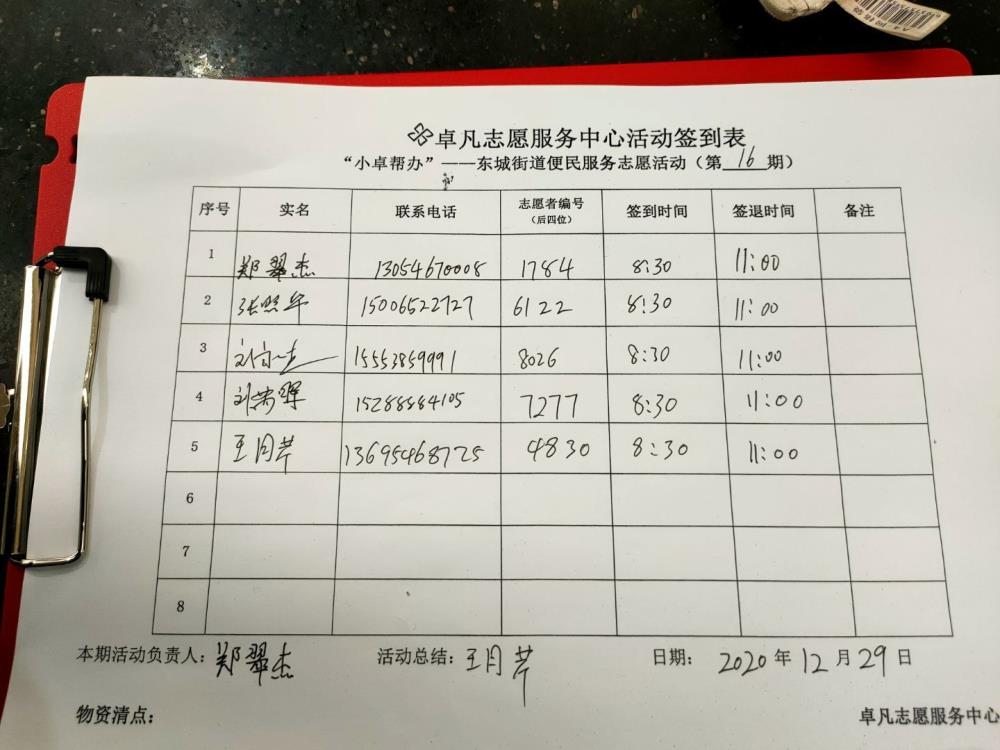 卓凡志愿服务中心活动签到表
“小卓帮办”——东城街道便民服务志愿活动（第16期）
序号 实名 联系电话 志愿者编号（后四位） 签到时间 签退时间 备注
1 郑翠杰 13054670008 1784 8:30 11:00
2 张照华 15006522727 6122 8:30 11:00
3 刘 15553859991 8026 8:30 11:00
4 刘 15288884105 7277 8:30 11:00
5 王月芹 13695468725 4830 8:30 11:00
6
7
8
本期活动负责人：郑翠杰 活动总结：王月芹 日期：2020年12月29日
物资清点： 卓凡志愿服务中心